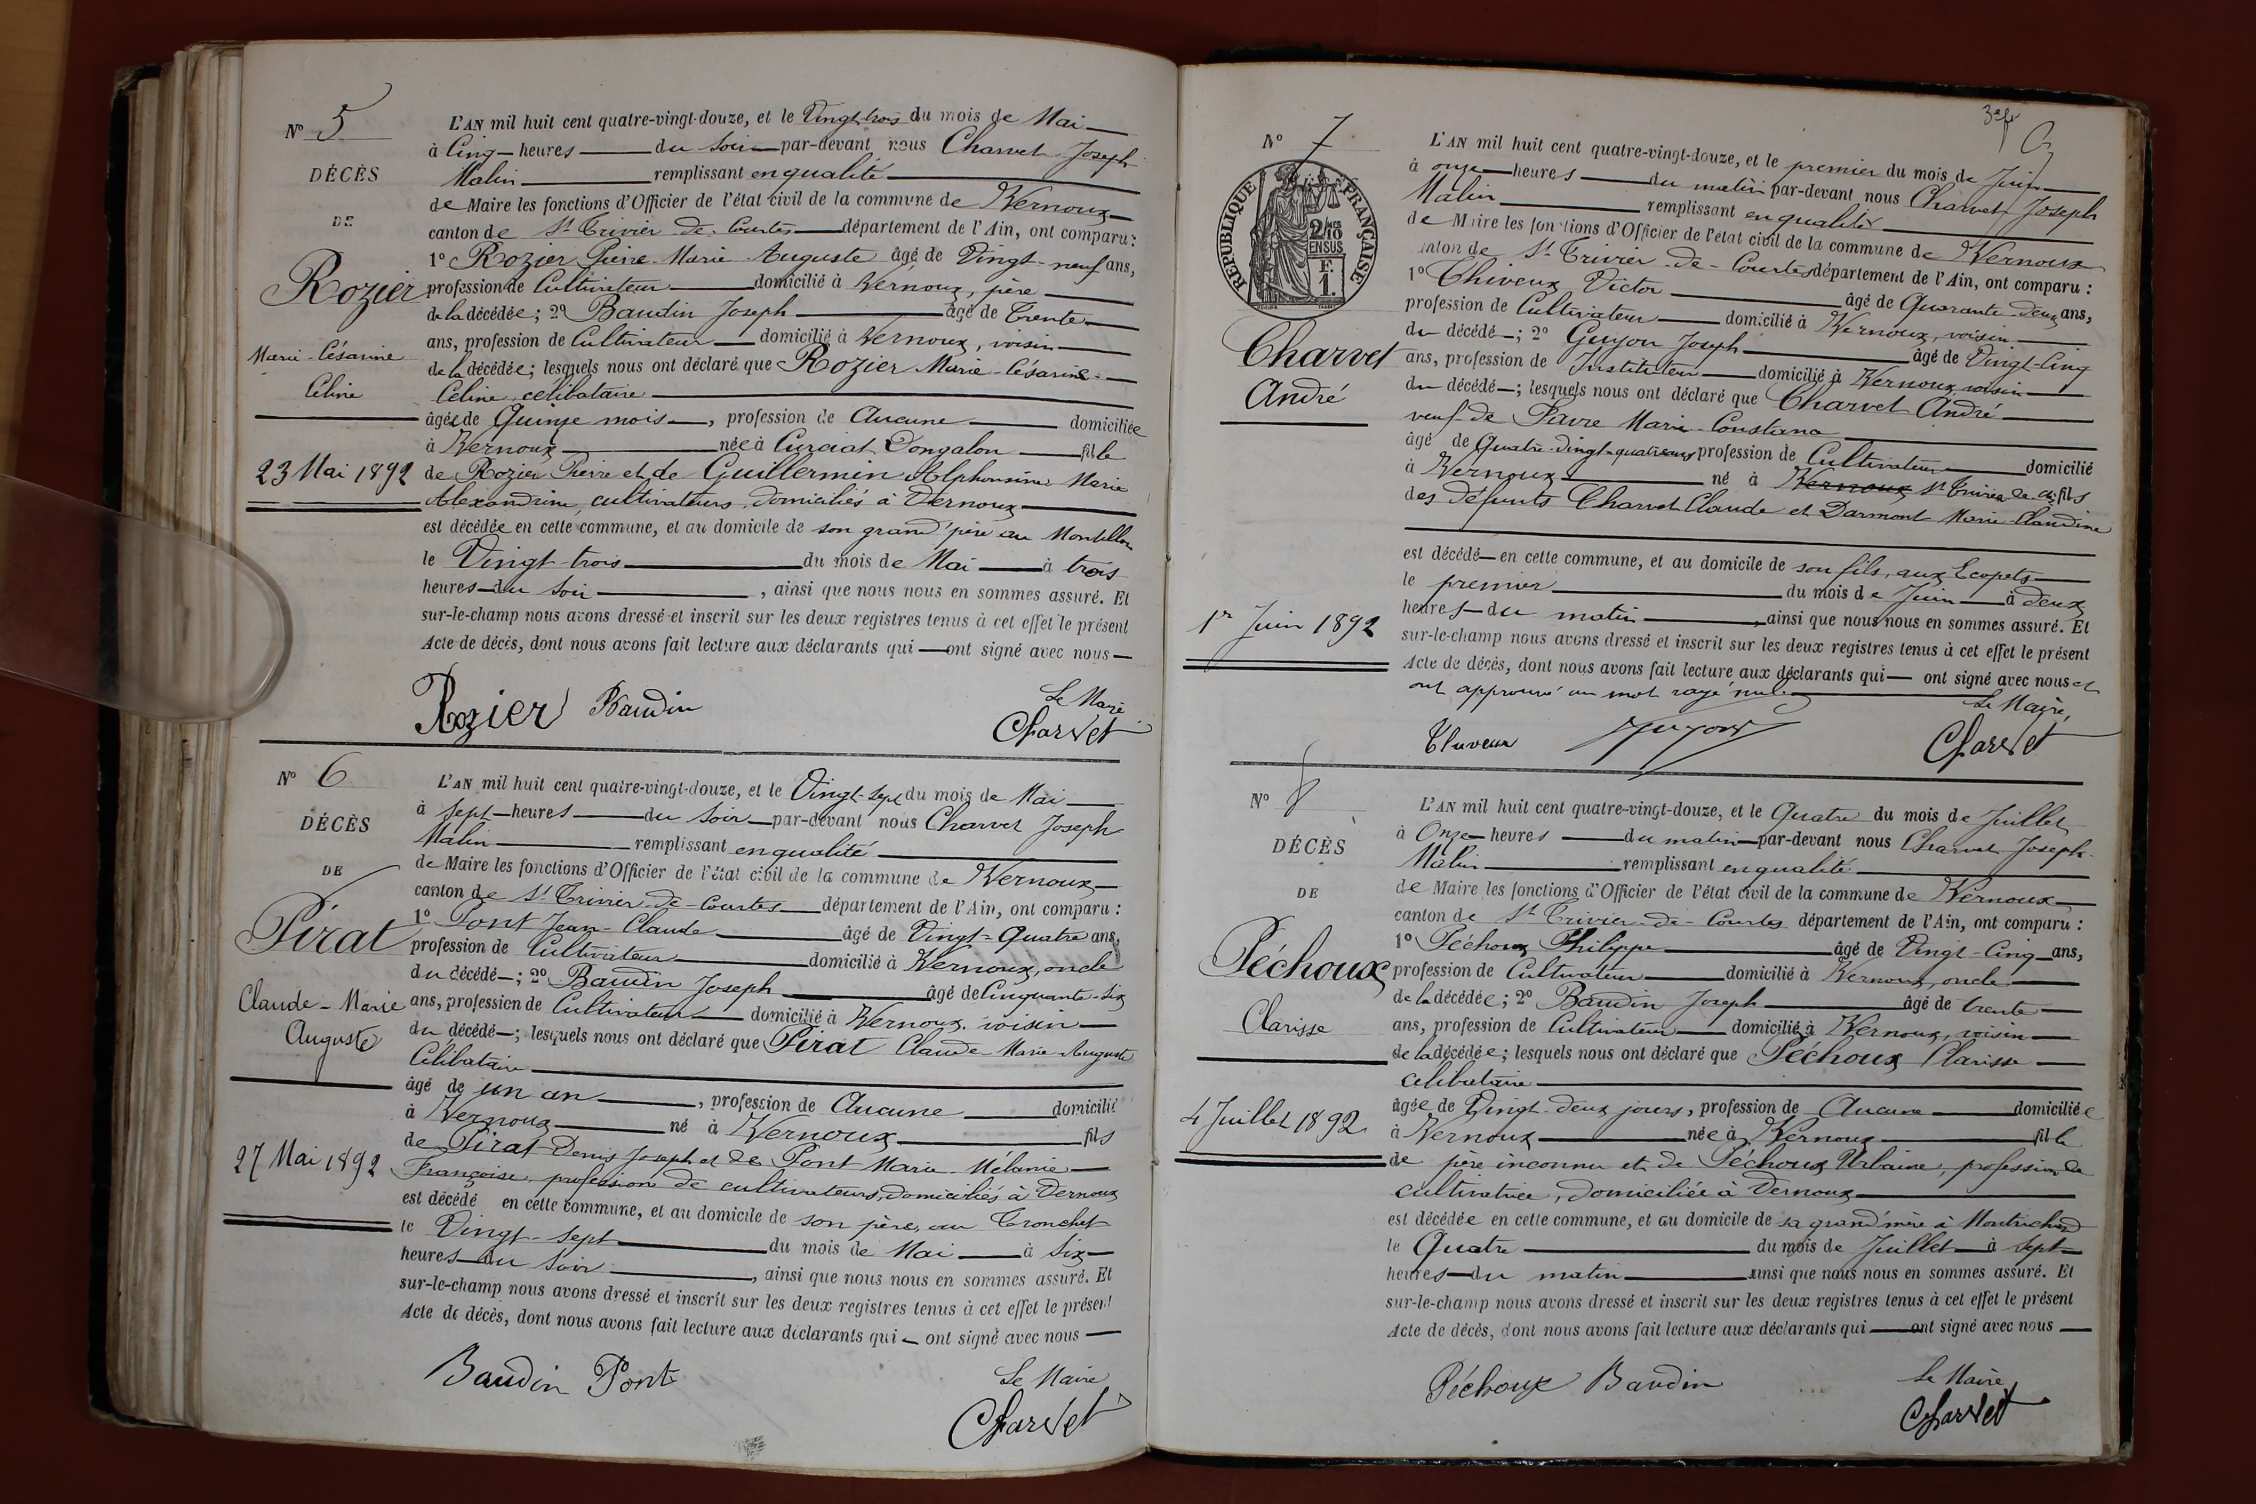 N° 5
DÉCÈS
DE
Rozier
Marie-Césarine
Céline
23 Mai 1892
L'AN mil huit cent quatre-vingt-douze, et le Vingt-trois du mois de Mai
à Cinq heures du soir par-devant nous Charvet Joseph
Malin remplissant en qualité
de Maire les fonctions d'Officier de l'état civil de la commune de Vernoux
canton de St Trivier-de-Courtes département de l'Ain, ont comparu :
1° Rozier Pierre-Marie-Auguste âgé de Vingt-neuf ans,
profession de Cultivateur domicilié à Vernoux, père
de la décédée ; 2° Baudin Joseph âgé de Trente
ans, profession de Cultivateur domicilié à Vernoux, voisin
de la décédée ; lesquels nous ont déclaré que Rozier Marie-Césarine
Céline célibataire
âgée de Quinze mois, profession de Aucune domiciliée
à Vernoux née à Curciat Dongalon fille
de Rozier Pierre et de Guillermin Alphonsine Marie
Alexandrine, cultivateurs domiciliés à Vernoux
est décédée en cette commune, et au domicile de son grand'père au
le Vingt-trois du mois de Mai à trois
heures du soir, ainsi que nous nous en sommes assuré. Et
sur-le-champ nous avons dressé et inscrit sur les deux registres tenus à cet effet le présent
Acte de décès, dont nous avons fait lecture aux déclarants qui ont signé avec nous
Rozier Baudin Le Maire
Charvet
N° 6
DÉCÈS
DE
Pirat
Claude-Marie
Auguste
27 Mai 1892
L'AN mil huit cent quatre-vingt-douze, et le Vingt-sept du mois de Mai
à sept heures du soir par-devant nous Charvet Joseph
Malin remplissant en qualité
de Maire les fonctions d'Officier de l'état civil de la commune de Vernoux
canton de St Trivier-de-Courtes département de l'Ain, ont comparu :
1° Pont Jean-Claude âgé de Vingt-Quatre ans,
profession de Cultivateur domicilié à Vernoux, oncle
du décédé ; 2° Baudin Joseph âgé de Cinquante-six
ans, profession de Cultivateur domicilié à Vernoux, voisin
du décédé ; lesquels nous ont déclaré que Pirat Claude-Marie-Auguste
Célibataire
âgé de un an, profession de Aucune domicilié
à Vernoux né à Vernoux fils
de Pirat Denis Joseph et de Pont Marie-Mélanie
Françoise, profession de cultivateurs, domiciliés à Vernoux
est décédé en cette commune, et au domicile de son père, au Tronchet
le Vingt-sept du mois de Mai à six
heures du soir, ainsi que nous nous en sommes assuré. Et
sur-le-champ nous avons dressé et inscrit sur les deux registres tenus à cet effet le présent
Acte de décès, dont nous avons fait lecture aux déclarants qui ont signé avec nous
Baudin Pont Le Maire
Charvet
N° 7
RÉPUBLIQUE FRANÇAISE
2/10 EN SUS
F. 1.
Charvet
André
1er Juin 1892
L'AN mil huit cent quatre-vingt-douze, et le premier du mois de Juin
à onze heures du matin par-devant nous Charvet Joseph
Malin remplissant en qualité
de Maire les fonctions d'Officier de l'état civil de la commune de Vernoux
canton de St Trivier-de-Courtes département de l'Ain, ont comparu :
1° Thiveux Victor âgé de Quarante-deux ans,
profession de Cultivateur domicilié à Vernoux, voisin
du décédé ; 2° Guyon Joseph âgé de Vingt-Cinq
ans, profession de Instituteur domicilié à Vernoux, voisin
du décédé ; lesquels nous ont déclaré que Charvet André
veuf de Favre Marie
âgé de Quatre-Vingt-quatre ans profession de Cultivateur domicilié
à Vernoux né à Vernoux St Trivier de fils
des défunts Charvet Claude et Darmont Marie-Claudine
est décédé en cette commune, et au domicile de son fils, aux Ecopets
le premier du mois de Juin à deux
heures du matin, ainsi que nous nous en sommes assuré. Et
sur-le-champ nous avons dressé et inscrit sur les deux registres tenus à cet effet le présent
Acte de décès, dont nous avons fait lecture aux déclarants qui ont signé avec nous et
ont approuvé un mot rayé nul
Le Maire,
Thiveux Guyon Charvet
N° 8
DÉCÈS
DE
Péchoux
Clarisse
4 Juillet 1892
L'AN mil huit cent quatre-vingt-douze, et le Quatre du mois de Juillet
à Onze heures du matin par-devant nous Charvet Joseph
Malin remplissant en qualité
de Maire les fonctions d'Officier de l'état civil de la commune de Vernoux
canton de St Trivier-de-Courtes département de l'Ain, ont comparu :
1° Péchoux Philippe âgé de Vingt-Cinq ans,
profession de Cultivateur domicilié à Vernoux, oncle
de la décédée ; 2° Baudin Joseph âgé de trente
ans, profession de Cultivateur domicilié à Vernoux, voisin
de la décédée ; lesquels nous ont déclaré que Péchoux Clarisse
célibataire
âgée de Vingt-deux jours, profession de Aucune domiciliée
à Vernoux née à Vernoux fille
de père inconnu et de Péchoux Urbaine, profession de
cultivatrice, domiciliée à Vernoux
est décédée en cette commune, et au domicile de sa grand'mère à Montrichard
le Quatre du mois de Juillet à sept
heures du matin ainsi que nous nous en sommes assuré. Et
sur-le-champ nous avons dressé et inscrit sur les deux registres tenus à cet effet le présent
Acte de décès, dont nous avons fait lecture aux déclarants qui ont signé avec nous
Péchoux Baudin Le Maire
Charvet